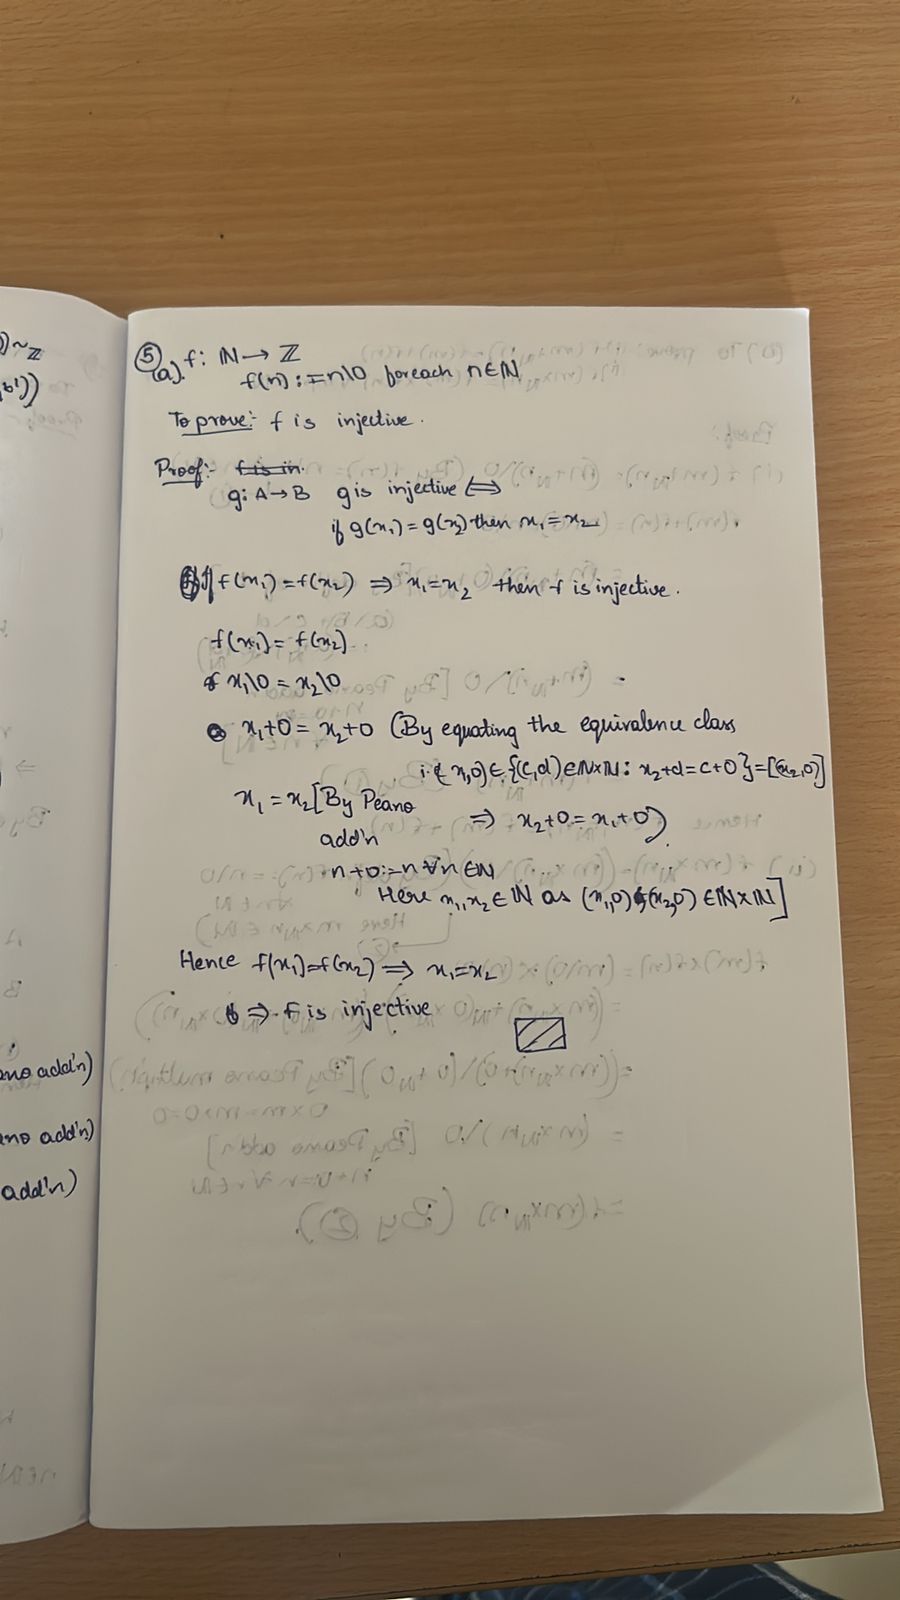 ) ~ℤ
,b'))
ano add'n)
ano add'n)
add'n)
⑤
(a). f: ℕ → ℤ
f(n) := n\0 foreach n∈ℕ
To prove:- f is injective.
Proof:- f is in.
g: A→B g is injective ⟺
if g(x₁) = g(x₂) then x₁ = x₂.
If f(x₁) = f(x₂) ⇒ x₁ = x₂ then f is injective.
f(x₁) = f(x₂)
x₁\0 = x₂\0
x₁+0 = x₂+0 (By equating the equivalence class
i.e x₁,0) ∈ {(c,d) ∈ ℕ×ℕ : x₂+d = c+0} = [(x₂,0)]
x₁ = x₂ [By Peano ⇒ x₂+0 = x₁+0)
add'n
n+0:=n ∀n∈ℕ
Here x₁,x₂ ∈ ℕ as (x₁,0) & (x₂,0) ∈ ℕ×ℕ]
Hence f(x₁)=f(x₂) ⇒ x₁=x₂
⇒ f is injective